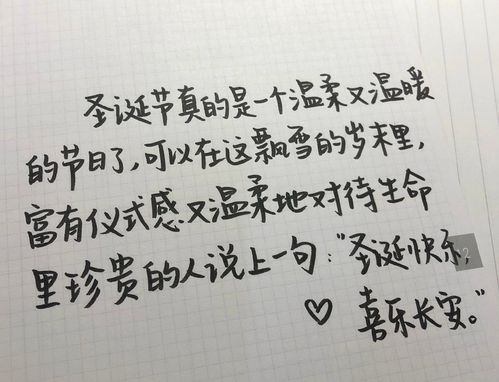 圣诞节真的是一个温柔又温暖
的节日了,可以在这飘雪的岁末里,
富有仪式感又温柔地对待生命
里珍贵的人说上一句:“圣诞快乐,
♡ 喜乐长安。”